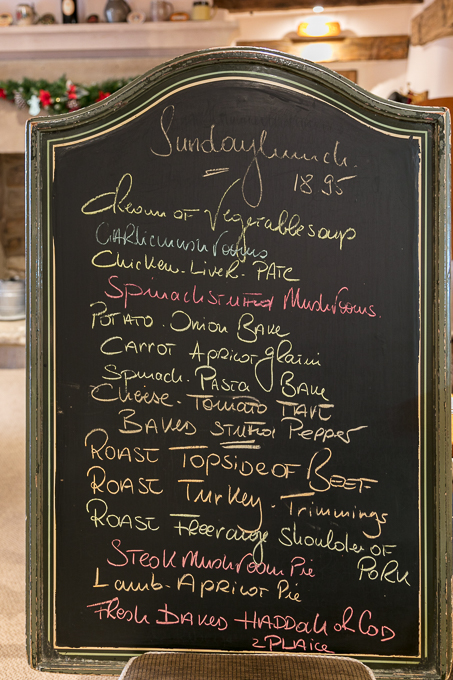 Sunday lunch.
18.95
Cream of Vegetable soup
Garlic mushrooms
Chicken. Liver. Pate
Spinach stuffed Mushrooms.
Potato. Onion Bake
Carrot Apricot
Spinach. Pasta Bake
Cheese. Tomato Tart
Baked stuffed Pepper
Roast Topside of Beef
Roast Turkey. Trimmings
Roast Freerange Shoulder of
Pork
Steak Mushroom Pie
Lamb. Apricot Pie
Fresh Baked Haddock or Cod
2 Plaice